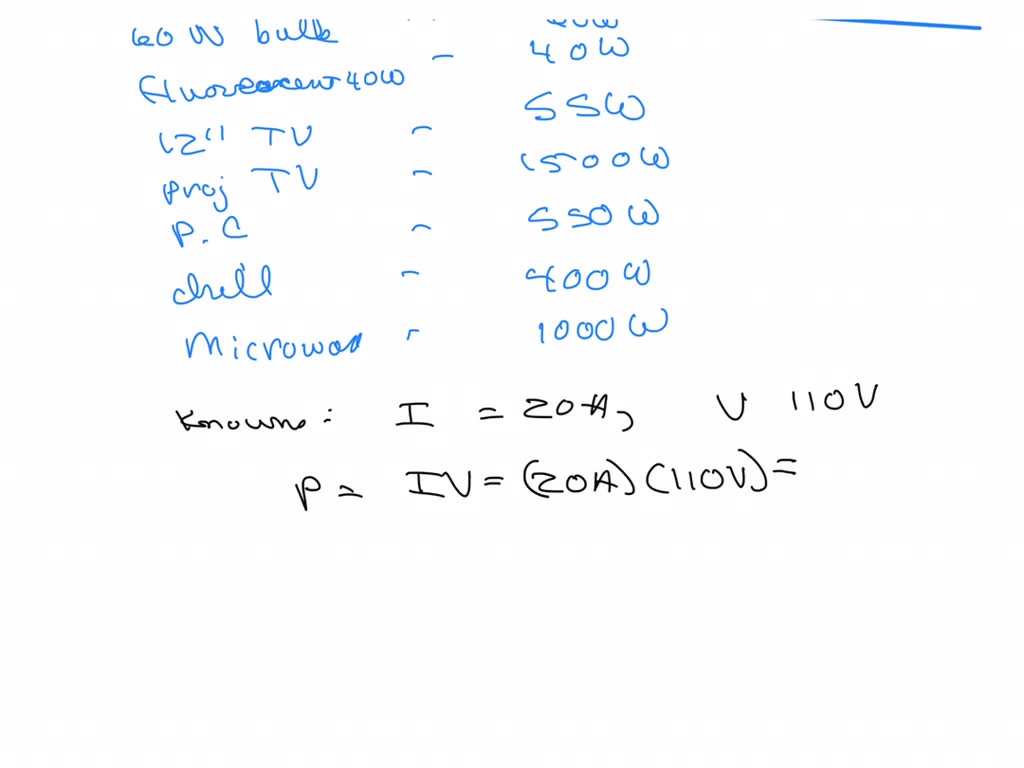 60 W bulb
40W
Fluorescent 40W -
12" TV - 55W
Proj TV - 1500W
P.C - 550W
drill - 400W
Microwav - 1000W
Knowns: I = 20A, V 110V
P = IV = (20A)(110V) =